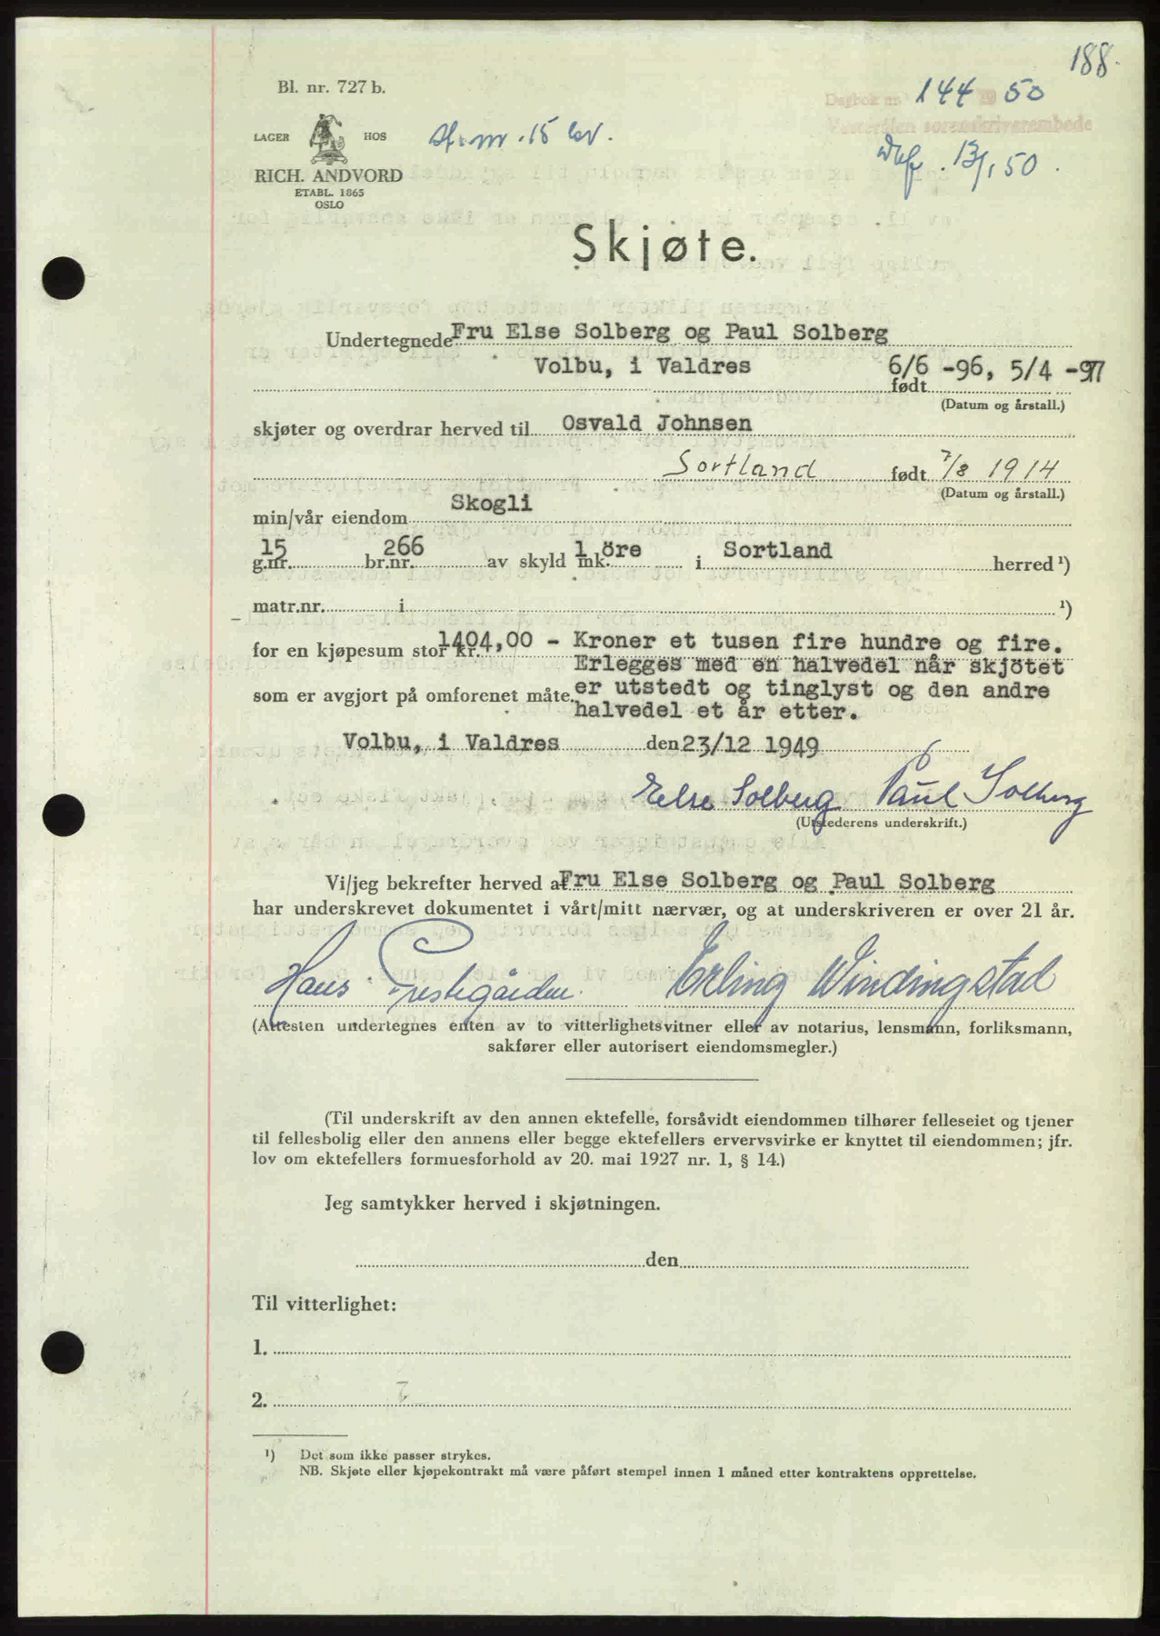 188.
Bl. nr. 727 b.
Dagbok nr. 144 1950
Vesterålen sorenskriverembede
LAGER HOS
St.m. 15 kr.
13/1 50.
RICH. ANDVORD
ETABL. 1865
OSLO
Skjøte.
Undertegnede Fru Else Solberg og Paul Solberg
Volbu, i Valdres 6/6 -96, 5/4 -97
født
(Datum og årstall.)
skjøter og overdrar herved til Osvald Johnsen
Sortland født 7/8 1914
(Datum og årstall.)
min/vår eiendom Skogli
g.nr. 15 br.nr. 266 av skyld mk. 1 öre i Sortland herred ¹)
matr.nr. i ¹)
for en kjøpesum stor kr. 1404,00 - Kroner et tusen fire hundre og fire.
Erlegges med en halvedel når skjötet
som er avgjort på omforenet måte. er utstedt og tinglyst og den andre
halvedel et år etter.
Volbu, i Valdres den 23/12 1949
Else Solberg Paul Solberg
(Utstederens underskrift.)
Vi/jeg bekrefter herved at Fru Else Solberg og Paul Solberg
har underskrevet dokumentet i vårt/mitt nærvær, og at underskriveren er over 21 år.
Hans Prestegården Erling Windingstad
(Attesten undertegnes enten av to vitterlighetsvitner eller av notarius, lensmann, forliksmann,
sakfører eller autorisert eiendomsmegler.)
(Til underskrift av den annen ektefelle, forsåvidt eiendommen tilhører felleseiet og tjener
til fellesbolig eller den annens eller begge ektefellers ervervsvirke er knyttet til eiendommen; jfr.
lov om ektefellers formuesforhold av 20. mai 1927 nr. 1, § 14.)
Jeg samtykker herved i skjøtningen.
den
Til vitterlighet:
1.
2.
¹) Det som ikke passer strykes.
NB. Skjøte eller kjøpekontrakt må være påført stempel innen 1 måned etter kontraktens opprettelse.